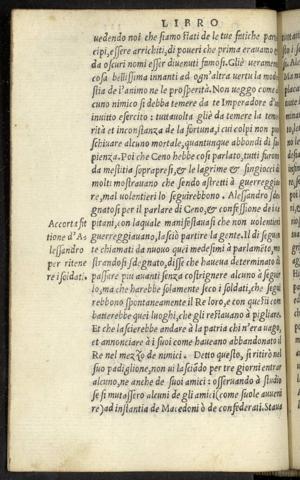 LIBRO
uedendo noi che siamo stati de le tue fatiche parte
cipi, essere arrichiti, di poueri che prima erauamo e
da oscuri nomi esser diuenuti famosi. Gliè ueramente
cosa bellissima innanti ad ogn'altra uertu la mode
stia de l'animo ne le prosperità. Non ueggo come d'
cuno nimico si debba temere da te Imperadore d'
inuitto esercito: tuttauolta gliè da temere la teme
rità et inconstanza de la fortuna, i cui colpi non puo
schiuare alcuno mortale, quantunque abbondi di sa
pienza. Poi che Ceno hebbe cosi parlato, tutti furono
da mestitia soprapresi, & le lagrime & singiocci di
molti mostrauano che sendo astretti à guerreggia
re, mal uolentieri lo seguirebbono. Alessandro sde
gnatosi per il parlare di Ceno, & confessione de i ca
pitani, con laquale manifestauasi che non uolentieri
guerreggiauano, lasciò partire la gente. Il di seguen
te chiamati da nuouo quei medesimi à parlamēto, mo
strandosi sdegnato, disse che haueua determinato di
passare piu auanti senza costrignere alcuno à seguir
lo, ma che harebbe solamente seco i soldati, che segui
rebbono spontaneamente il Re loro, e con questi com
batterebbe quei luoghi, che gli restauano à pigliare.
Et che lascierebbe andare à la patria chi n'era uago,
et annonciare à i suoi come haueano abbandonato il
Re nel mezzo de nimici. Detto questo, si ritirò nel
suo padiglione, non ui lasciādo per tre giorni entrar
alcuno, ne anche de suoi amici: osseruando à studio
se si mutassero alcuni de gli amici (come suole auueni
re) ad instantia de Macedoni ò de confederati. Staua
Accorta fit
tione d'A-
lessandro
per ritene
re i soldati.